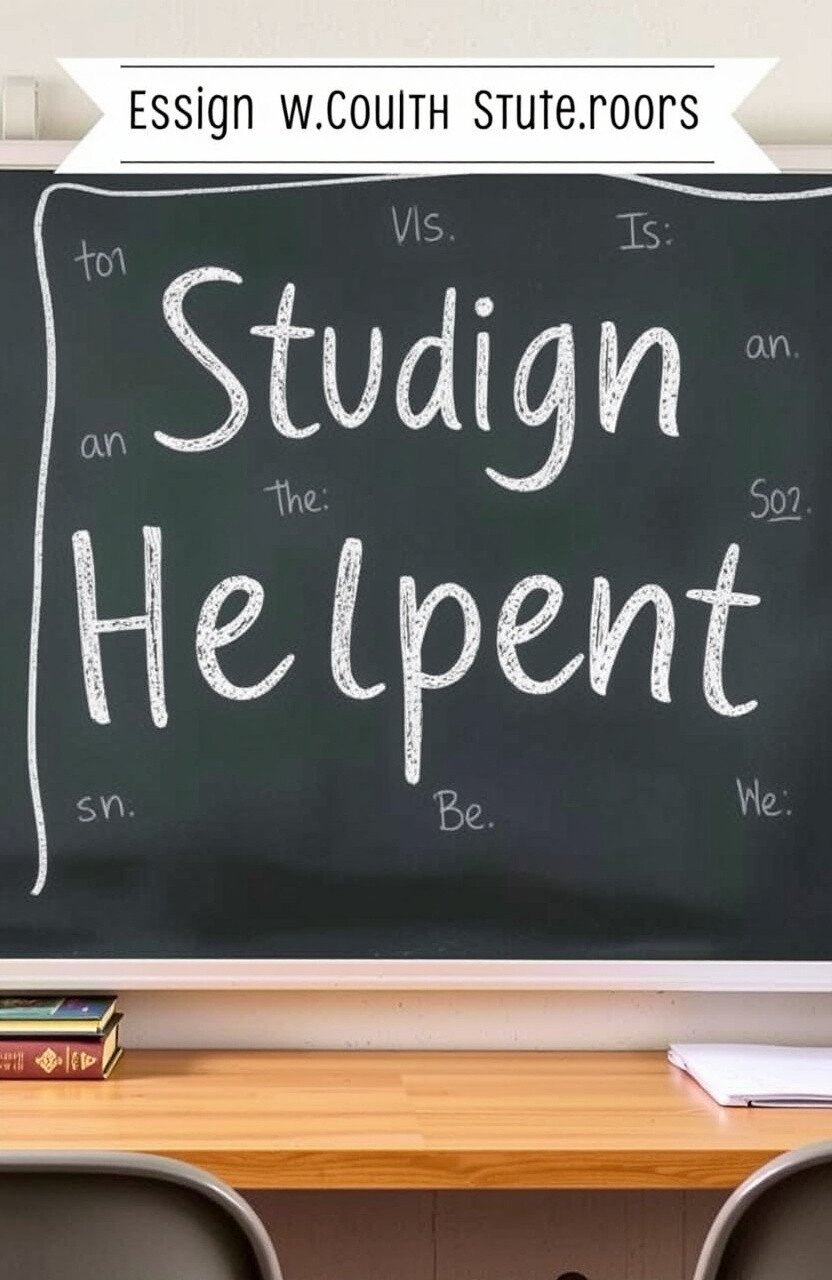 Essign w.Coulth Stute.roors
Vls. Is:
to1
Studign
an.
an
The: So?.
Helpent
sn. Be. We: